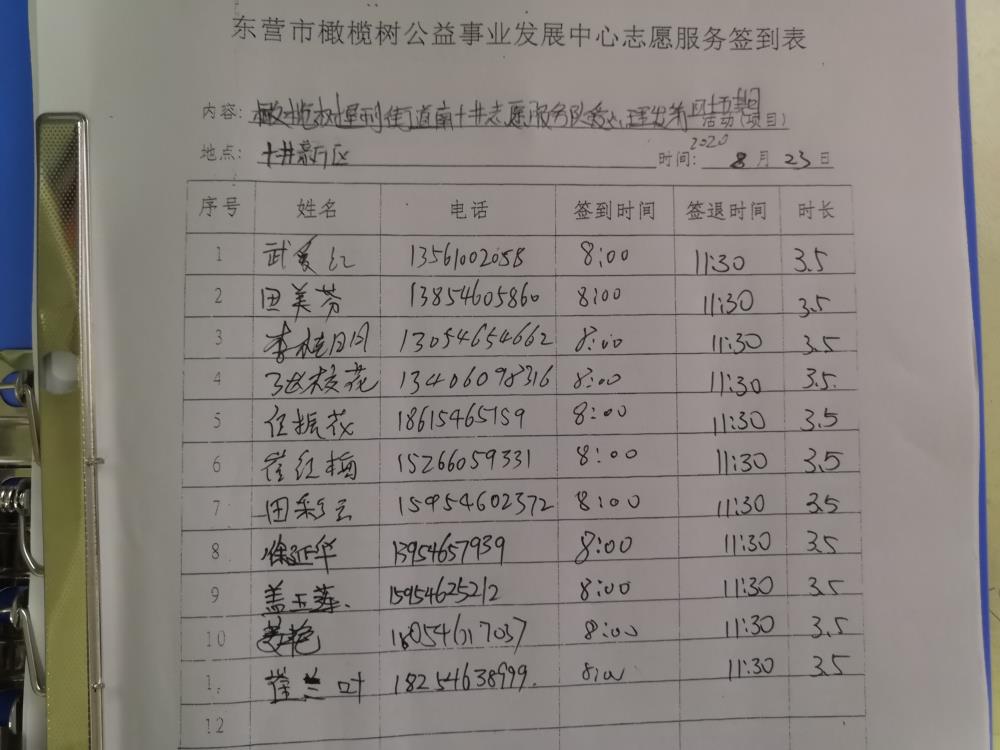 东营市橄榄树公益事业发展中心志愿服务签到表
内容: 橄榄树垦利街道南十井志愿服务队爱心理发第四十五期活动(项目)
地点: 十井新区 时间: 2020 8月23日
序号 姓名 电话 签到时间 签退时间 时长
1 武爱红 13561002058 8:00 11:30 3.5
2 田美芬 13854605860 8:00 11:30 3.5
3 李桂明 13054654662 8:00 11:30 3.5
4 张枝花 13406098316 8:00 11:30 3.5
5 任振花 18615465159 8:00 11:30 3.5
6 崔红梅 15266059331 8:00 11:30 3.5
7 田彩云 15954602372 8:00 11:30 3.5
8 徐延华 13954657939 8:00 11:30 3.5
9 盖玉莲. 15954625212 8:00 11:30 3.5
10 18054617037 8:00 11:30 3.5
1. 崔兰叶 18254638999. 8:00 11:30 3.5
12